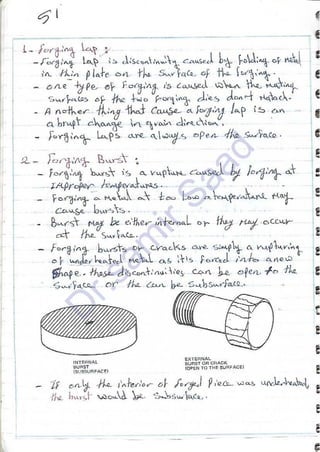 51
1- Forging Lap :
- Forging Lap is discontinuity caused by folding of metal
in thin plate on the Surface of the forging.
- one type of Forging is caused when the mating
Surfaces of the two forging dies don't Match.
- Another thing that Cause a forging lap is an
abrupt change in grain direction.
- Forging Laps are always open the surface.
2- Forging Burst :
- Forging burst is a rupture caused by forging at
IMproper temperatures.
- Forging a Metal at too Low a temperature May
Cause bursts.
- Burst May be either internal or they May occur
at the Surface.
- Forging bursts or cracks are simply a rupturing
of underheated Metal as it's forced into a new
Shape. these discontinuities can be open to the
Surface or the can be Subsurface.
INTERNAL
BURST
(SUBSURFACE)
EXTERNAL
BURST OR CRACK
(OPEN TO THE SURFACE)
- If only the interior of forged Piece was underheated,
the burst would be Subsurface.
Dr. Samir Saad